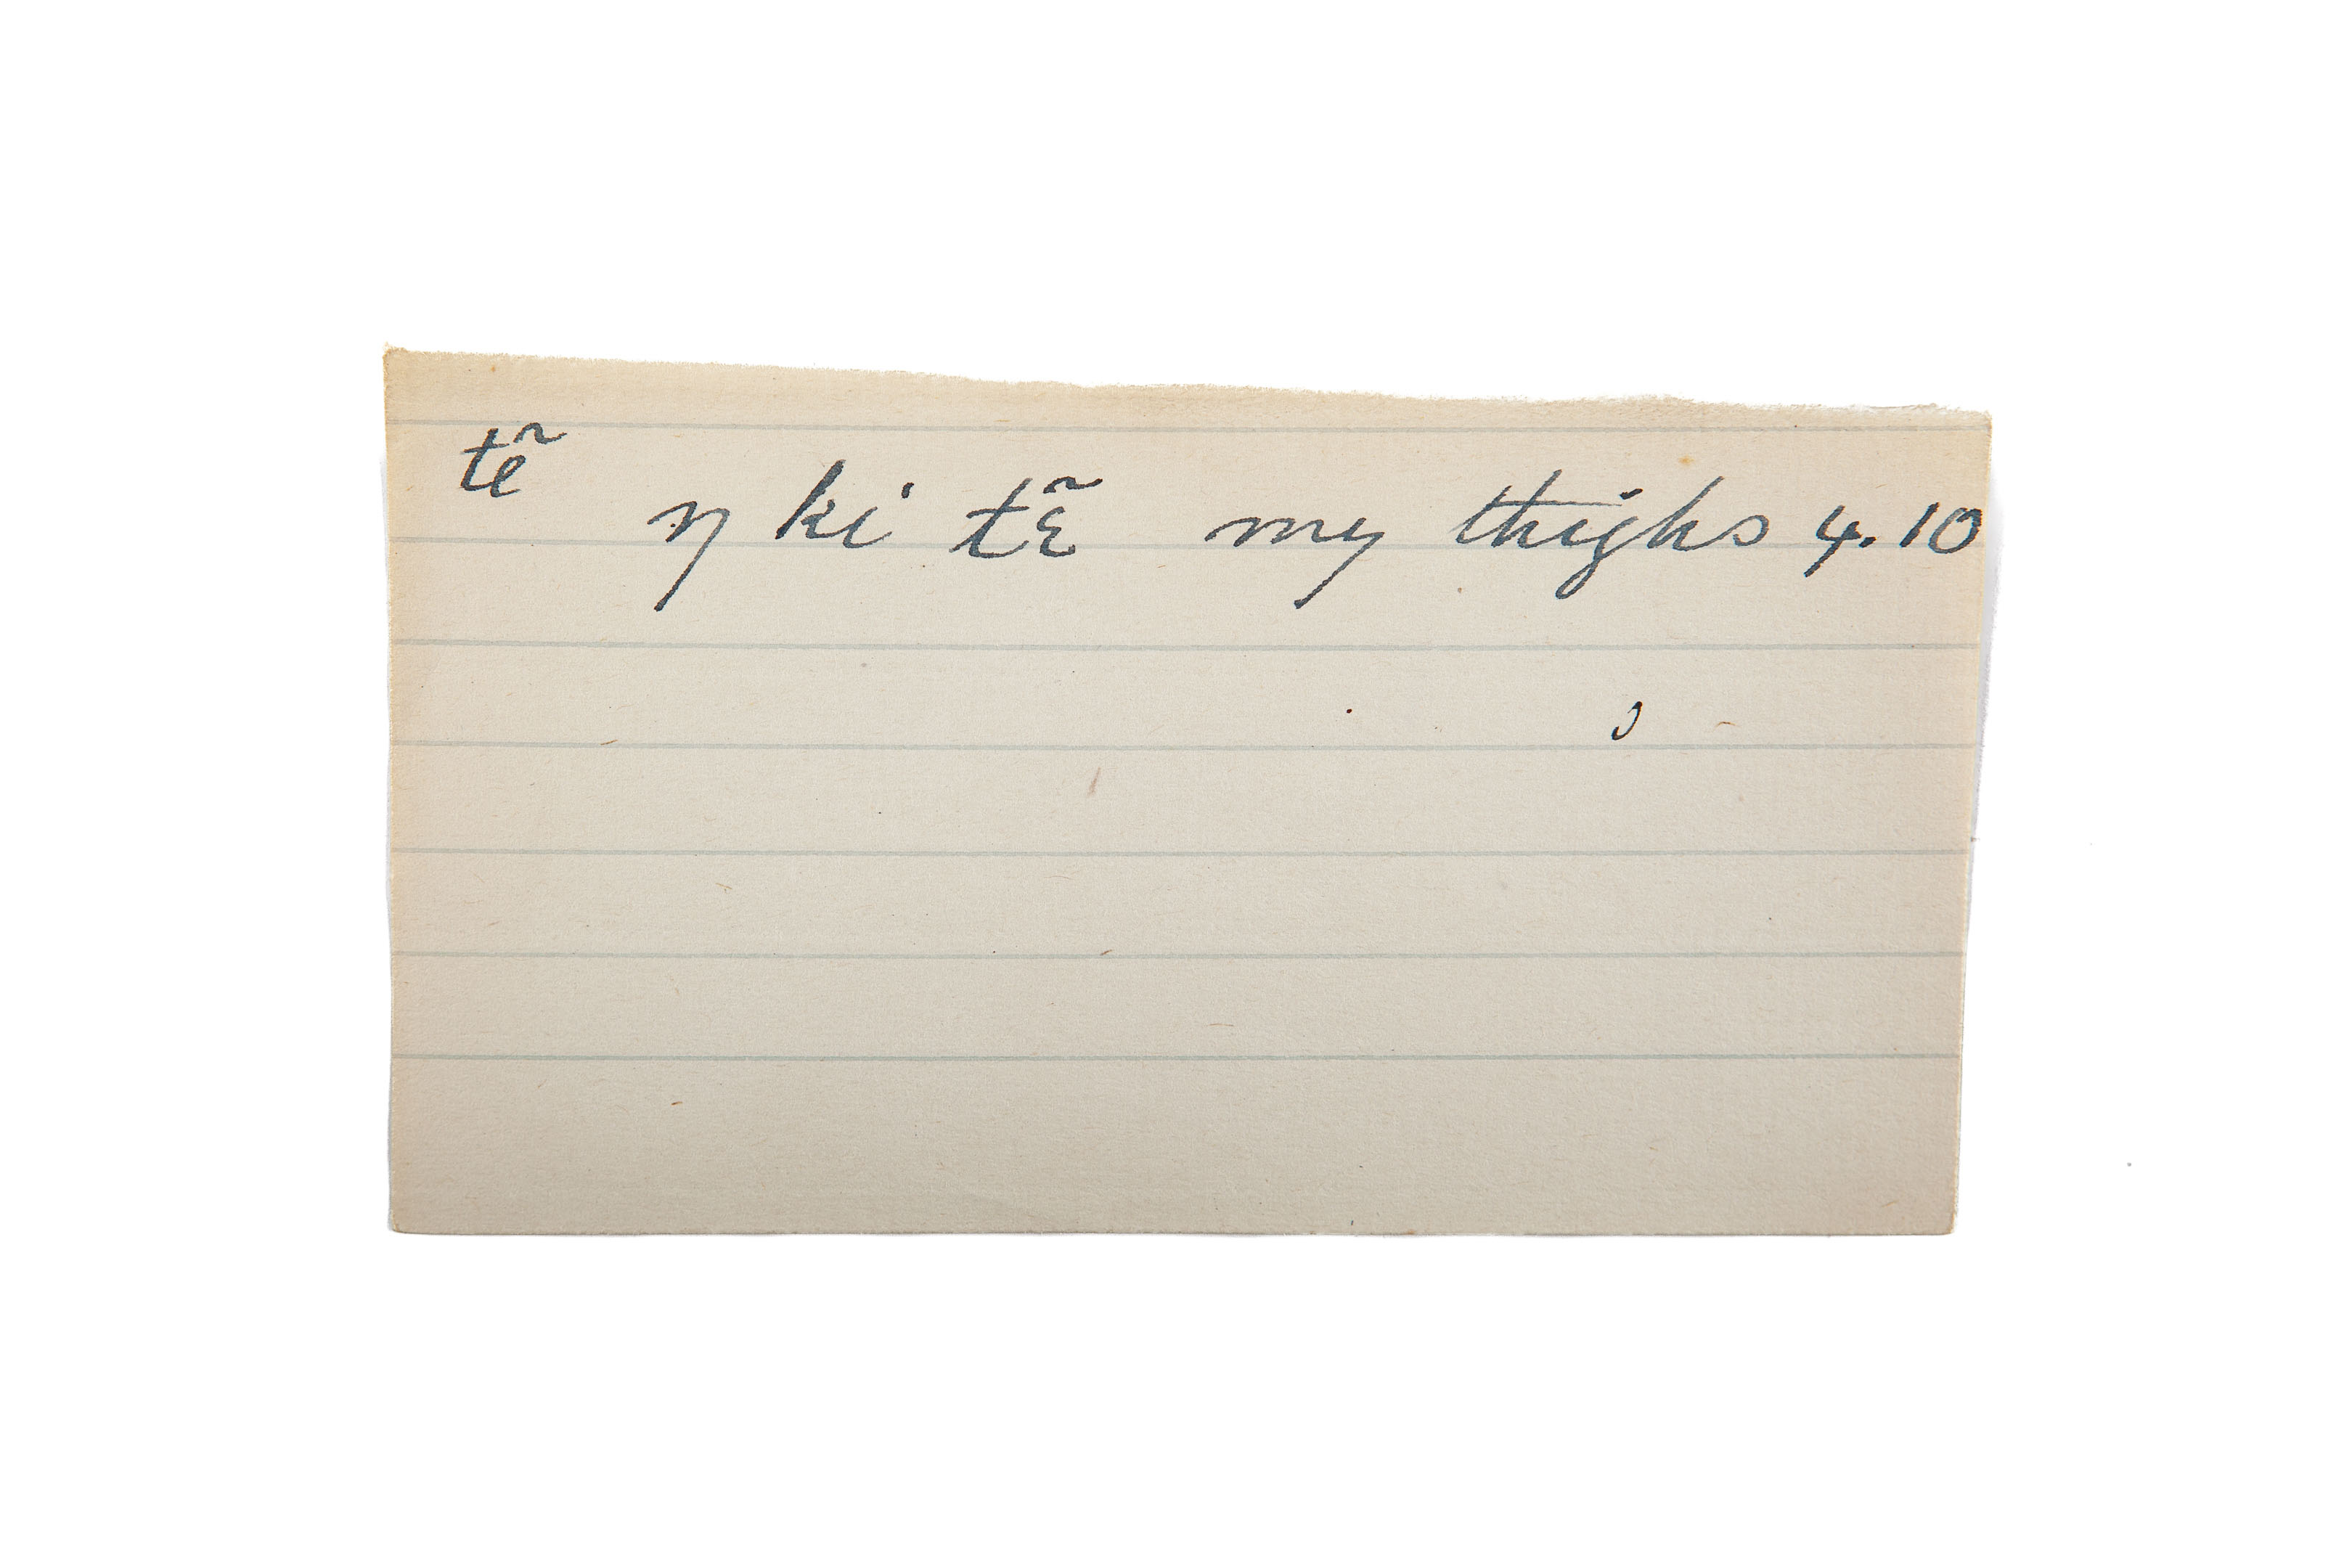 tẽ
ŋ ki tɛ̃ my thighs 4.10